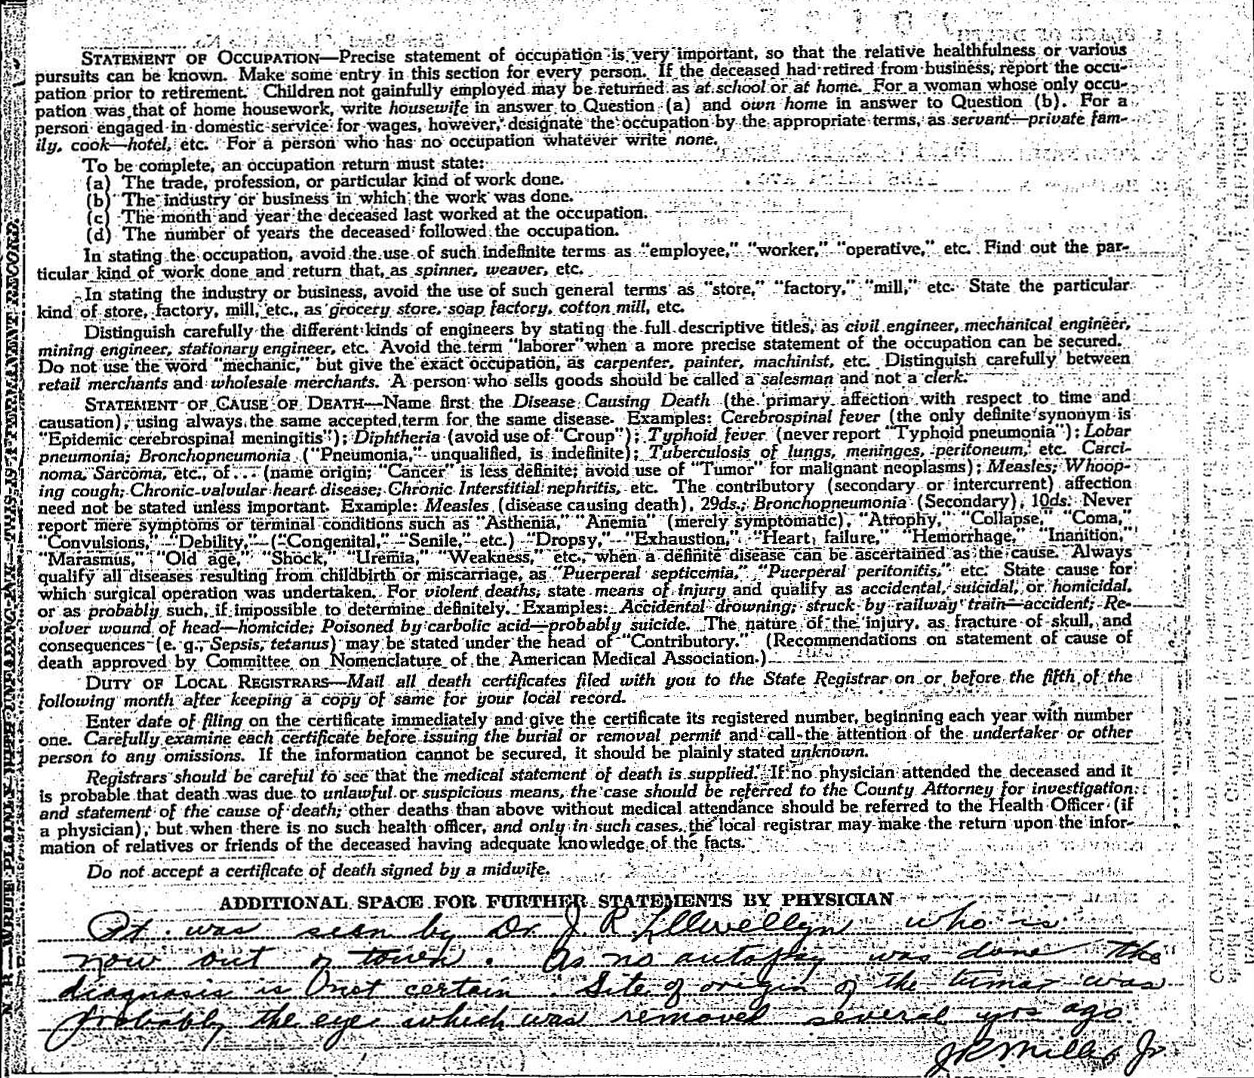 STATEMENT OF OCCUPATION—Precise statement of occupation is very important, so that the relative healthfulness or various
pursuits can be known. Make some entry in this section for every person. If the deceased had retired from business, report the occu-
pation prior to retirement. Children not gainfully employed may be returned as at school or at home. For a woman whose only occu-
pation was that of home housework, write housewife in answer to Question (a) and own home in answer to Question (b). For a
person engaged in domestic service for wages, however, designate the occupation by the appropriate terms, as servant—private fam-
ily, cook—hotel, etc. For a person who has no occupation whatever write none.
To be complete, an occupation return must state:
(a) The trade, profession, or particular kind of work done.
(b) The industry or business in which the work was done.
(c) The month and year the deceased last worked at the occupation.
(d) The number of years the deceased followed the occupation.
In stating the occupation, avoid the use of such indefinite terms as "employee," "worker," "operative," etc. Find out the par-
ticular kind of work done and return that, as spinner, weaver, etc.
In stating the industry or business, avoid the use of such general terms as "store," "factory," "mill," etc. State the particular
kind of store, factory, mill, etc., as grocery store, soap factory, cotton mill, etc.
Distinguish carefully the different kinds of engineers by stating the full descriptive titles, as civil engineer, mechanical engineer,
mining engineer, stationary engineer, etc. Avoid the term "laborer" when a more precise statement of the occupation can be secured.
Do not use the word "mechanic," but give the exact occupation, as carpenter, painter, machinist, etc. Distinguish carefully between
retail merchants and wholesale merchants. A person who sells goods should be called a salesman and not a clerk.
STATEMENT OF CAUSE OF DEATH—Name first the Disease Causing Death (the primary affection with respect to time and
causation), using always the same accepted term for the same disease. Examples: Cerebrospinal fever (the only definite synonym is
"Epidemic cerebrospinal meningitis"); Diphtheria (avoid use of "Croup"); Typhoid fever (never report "Typhoid pneumonia"); Lobar
pneumonia; Bronchopneumonia ("Pneumonia," unqualified, is indefinite); Tuberculosis of lungs, meninges, peritoneum, etc. Carci-
noma, Sarcoma, etc., of... (name origin; "Cancer" is less definite; avoid use of "Tumor" for malignant neoplasms); Measles; Whoop-
ing cough; Chronic valvular heart disease; Chronic Interstitial nephritis, etc. The contributory (secondary or intercurrent) affection
need not be stated unless important. Example: Measles (disease causing death), 29ds.; Bronchopneumonia (Secondary), 10ds. Never
report mere symptoms or terminal conditions such as "Asthenia," "Anemia" (merely symptomatic), "Atrophy," "Collapse," "Coma,"
"Convulsions," "Debility," ("Congenital," "Senile," etc.) "Dropsy," "Exhaustion," "Heart failure," "Hemorrhage," "Inanition,"
"Marasmus," "Old age," "Shock," "Uremia," "Weakness," etc., when a definite disease can be ascertained as the cause. Always
qualify all diseases resulting from childbirth or miscarriage, as "Puerperal septicemia," "Puerperal peritonitis," etc. State cause for
which surgical operation was undertaken. For violent deaths, state means of injury and qualify as accidental, suicidal, or homicidal.
or as probably such, if impossible to determine definitely. Examples: Accidental drowning; struck by railway train—accident; Re-
volver wound of head—homicide; Poisoned by carbolic acid—probably suicide. The nature of the injury, as fracture of skull, and
consequences (e. g., Sepsis, tetanus) may be stated under the head of "Contributory." (Recommendations on statement of cause of
death approved by Committee on Nomenclature of the American Medical Association.)
DUTY OF LOCAL REGISTRARS—Mail all death certificates filed with you to the State Registrar on or before the fifth of the
following month after keeping a copy of same for your local record.
Enter date of filing on the certificate immediately and give the certificate its registered number, beginning each year with number
one. Carefully examine each certificate before issuing the burial or removal permit and call the attention of the undertaker or other
person to any omissions. If the information cannot be secured, it should be plainly stated unknown.
Registrars should be careful to see that the medical statement of death is supplied. If no physician attended the deceased and it
is probable that death was due to unlawful or suspicious means, the case should be referred to the County Attorney for investigation
and statement of the cause of death; other deaths than above without medical attendance should be referred to the Health Officer (if
a physician), but when there is no such health officer, and only in such cases, the local registrar may make the return upon the infor-
mation of relatives or friends of the deceased having adequate knowledge of the facts.
Do not accept a certificate of death signed by a midwife.
ADDITIONAL SPACE FOR FURTHER STATEMENTS BY PHYSICIAN
Pt. was seen by Dr. J R Lllwellyn who is
now out of town. As no autopsy was done the
diagnosis is not certain. Site of origin of the tumor was
probably the eye which was removed several yrs ago.
JR Miller Jr
N. B.—WRITE PLAINLY WITH UNFADING INK—THIS IS A PERMANENT RECORD.